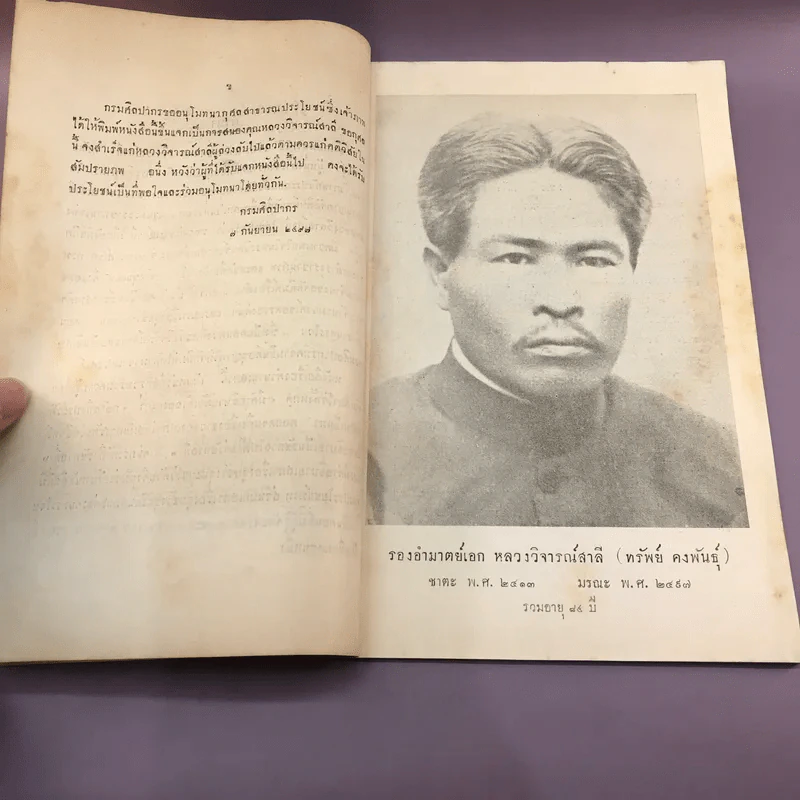 ข
กรมศิลปากรขออนุโมทนากุศลสาธารณประโยชน์ซึ่งเจ้าภาพ
ได้ให้พิมพ์หนังสือนี้ขึ้นแจกเป็นการสนองคุณหลวงวิจารณ์สาลี ขอกุศล
นี้ จงสำเร็จแก่หลวงวิจารณ์สาลีผู้ล่วงลับไปแล้วตามควรแก่คติวิสัยใน
สัมปรายภพ อนึ่ง หวังว่าผู้ที่ได้รับแจกหนังสือนี้ไป คงจะได้รับ
ประโยชน์เป็นที่พอใจและร่วมอนุโมทนาโดยทั่วกัน.
กรมศิลปากร
๘ กันยายน ๒๔๙๗
รองอำมาตย์เอก หลวงวิจารณ์สาลี (ทรัพย์ คงพันธุ์)
ชาตะ พ.ศ. ๒๔๑๓ มรณะ พ.ศ. ๒๔๙๗
รวมอายุ ๘๔ ปี